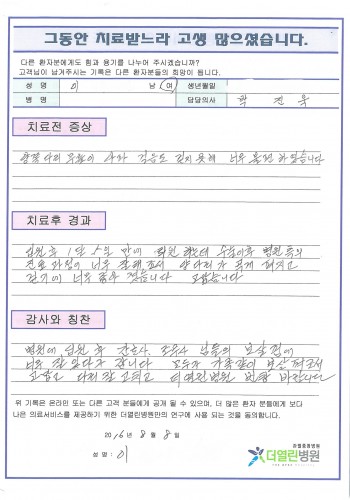 그동안 치료받느라 고생 많으셨습니다.
다른 환자분에게도 힘과 용기를 나누어 주시겠습니까?
고객님이 남겨주시는 기록은 다른 환자분들의 희망이 됩니다.
성 명 이 남 여 생년월일
병 명 담당의사 박진욱
치료전 증상
양쪽 다리 아파 걸음도 걷지 못해 너무 불편하였습니다
치료후 경과
입원후 1달 5일 만에 퇴원 하는데 수술이후 병원측의
진료과정이 너무 잘해주셔 양다리가 곧게 펴지고
걷기에 너무 좋습니다
감사와 칭찬
병원에 입원 후 간호사, 조무사 님들의 보살핌에
너무 잘 있다가 갑니다 모두가 가족같이 보살펴주셔
고맙고 더열린병원 번창 바랍니다
위 기록은 온라인 또는 다른 고객 분들에게 공개 될 수 있으며, 더 많은 환자 분들에게 보다
나은 의료서비스를 제공하기 위한 더열린병원만의 연구에 사용 되는 것을 동의합니다.
2016년 8월 8일
성명: 이
관절중점병원
더열린병원